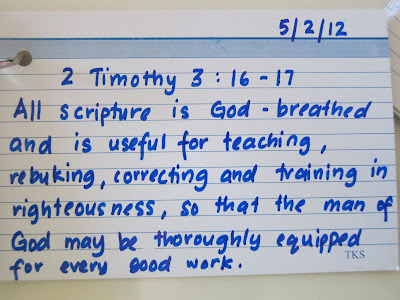 5/2/12
2 Timothy 3:16-17
All scripture is God-breathed
and is useful for teaching,
rebuking, correcting and training in
righteousness, so that the man of
God may be thoroughly equipped
for every good work.
TKS